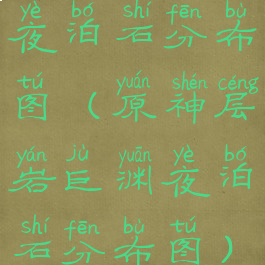 yè bó shí fēn bù
夜泊石分布
tú yuán shén céng
图（原神层
yán jù yuān yè bó
岩巨渊夜泊
shí fēn bù tú
石分布图）